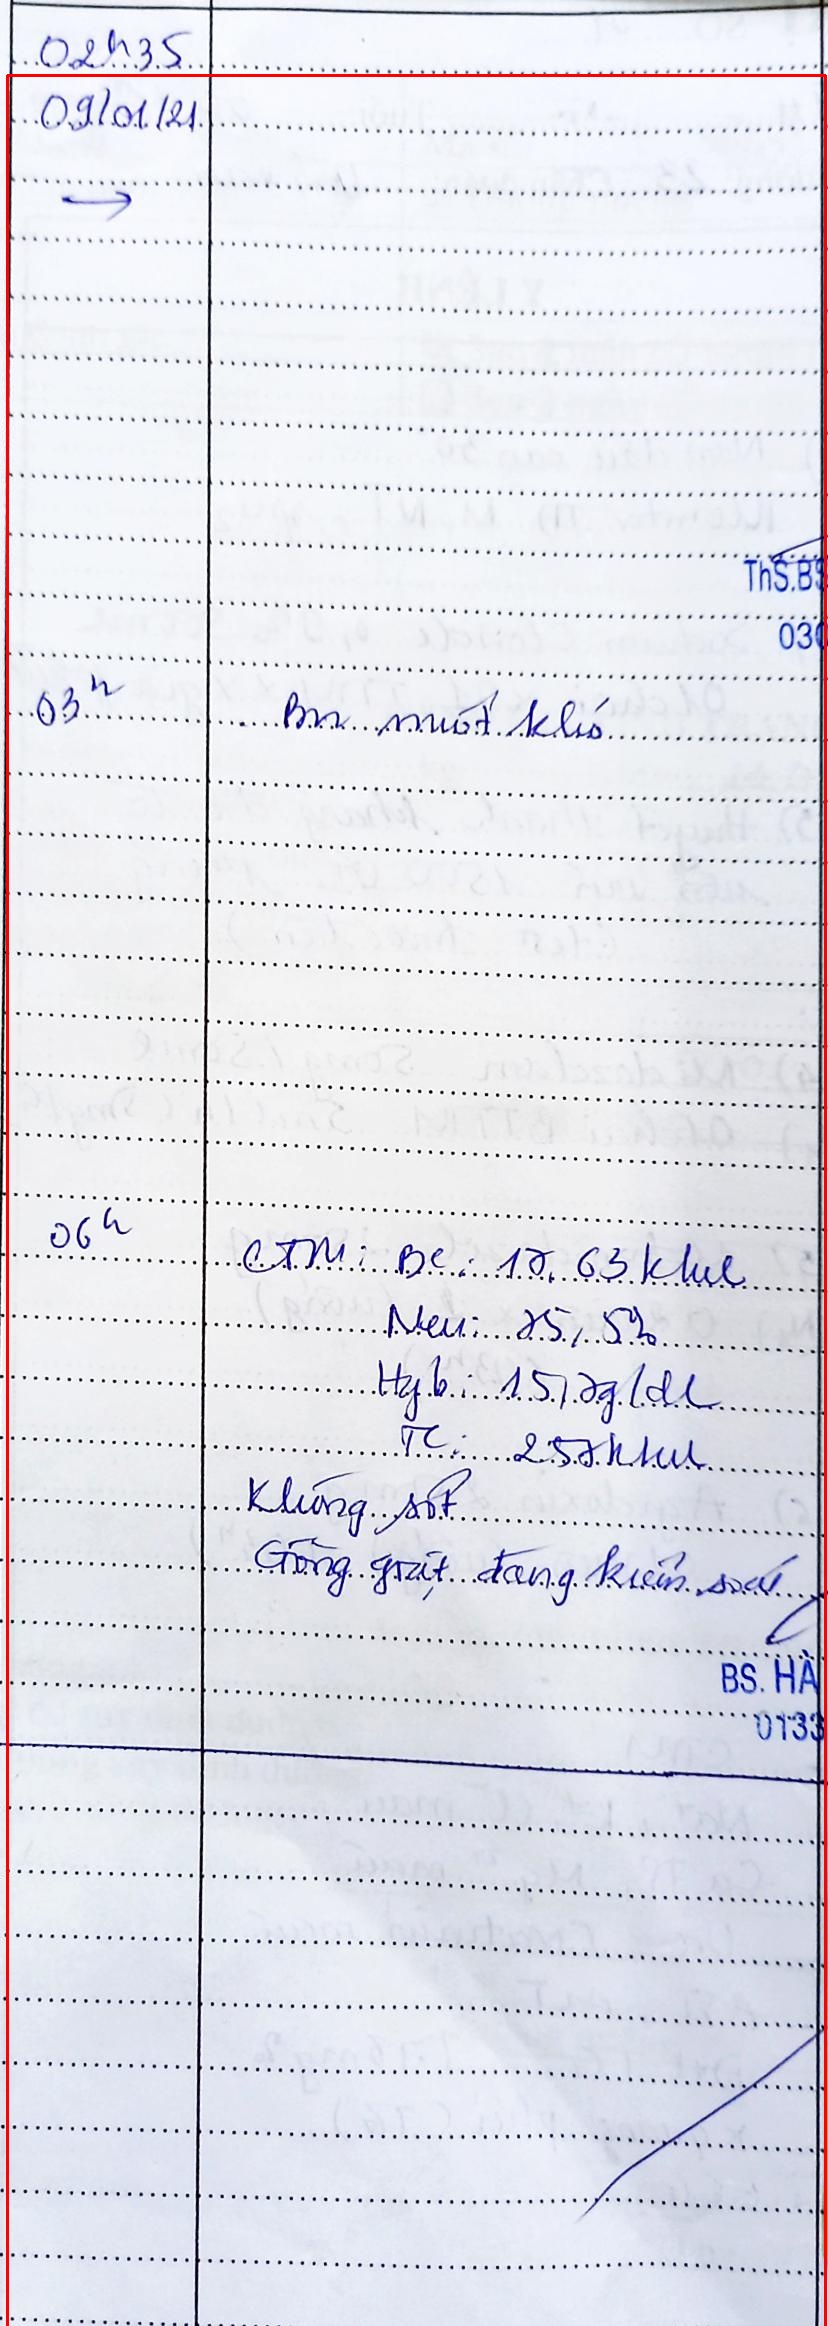 02h35
09/01/21
→
ThS.BS
030
03h . Bn nuốt khó
06h CTM: BC: 17,63 k/ul
Neu: 75,5%
Hgb: 15,7g/dL
TC: 257k/ul
Không sốt
Gồng giật đang kiểm soát
BS. HÀ
0133